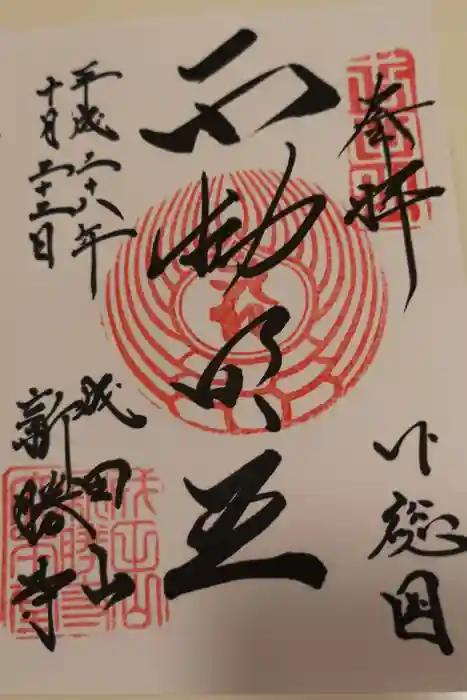 奉拝
下総国
不動明王
平成二十六年
十月二十三日
成田山
新勝寺